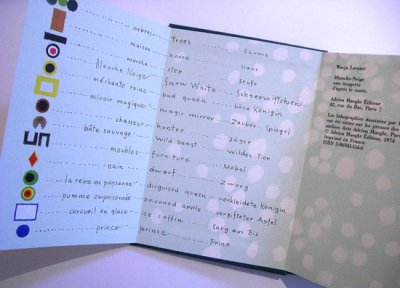 arbres ..... trees ..... Bäume
maison ..... house ..... Haus
marche ..... stair ..... Stufe
Blanche Neige ..... Snow White ..... Schneewittchen
méchante reine ..... bad queen ..... böse Königin
miroir magique ..... magic mirror ..... Zauber Spiegel
chasseur ..... hunter ..... Jäger
bête sauvage ..... wild beast ..... wildes Tier
meubles ..... furniture ..... Möbel
nain ..... dwarf ..... Zwerg
la reine en paysanne ..... disguised queen ..... verkleidete Königin
pomme empoisonnée ..... poisoned apple ..... vergifteter Apfel
cercueil en glace ..... ice coffin ..... Sarg aus Eis
prince ..... prince ..... Prinz
Warja Lavater
Blanche-Neige
une imagerie
d'après le conte.
Adrien Maeght Editeur
42, rue du Bac, Paris 7
Les lithographies dessinées par
ont été tirées sur les presses des
Ateliers Arte Adrien Maeght, Paris
© Adrien Maeght Editeur, 1974
Imprimé en France